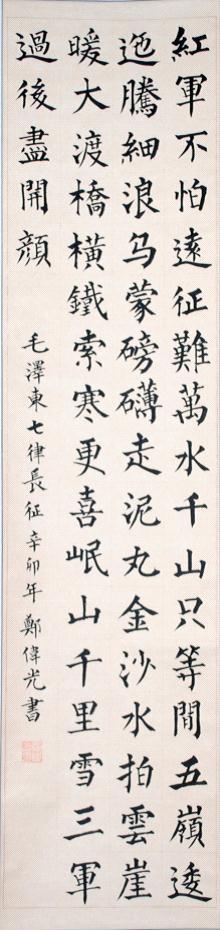 紅軍不怕遠征難萬水千山只等間五嶺逶
迤騰細浪乌蒙磅礴走泥丸金沙水拍雲崖
暖大渡橋橫鐵索寒更喜岷山千里雪三軍
過後盡開顏
毛澤東七律長征辛卯年鄭偉光書